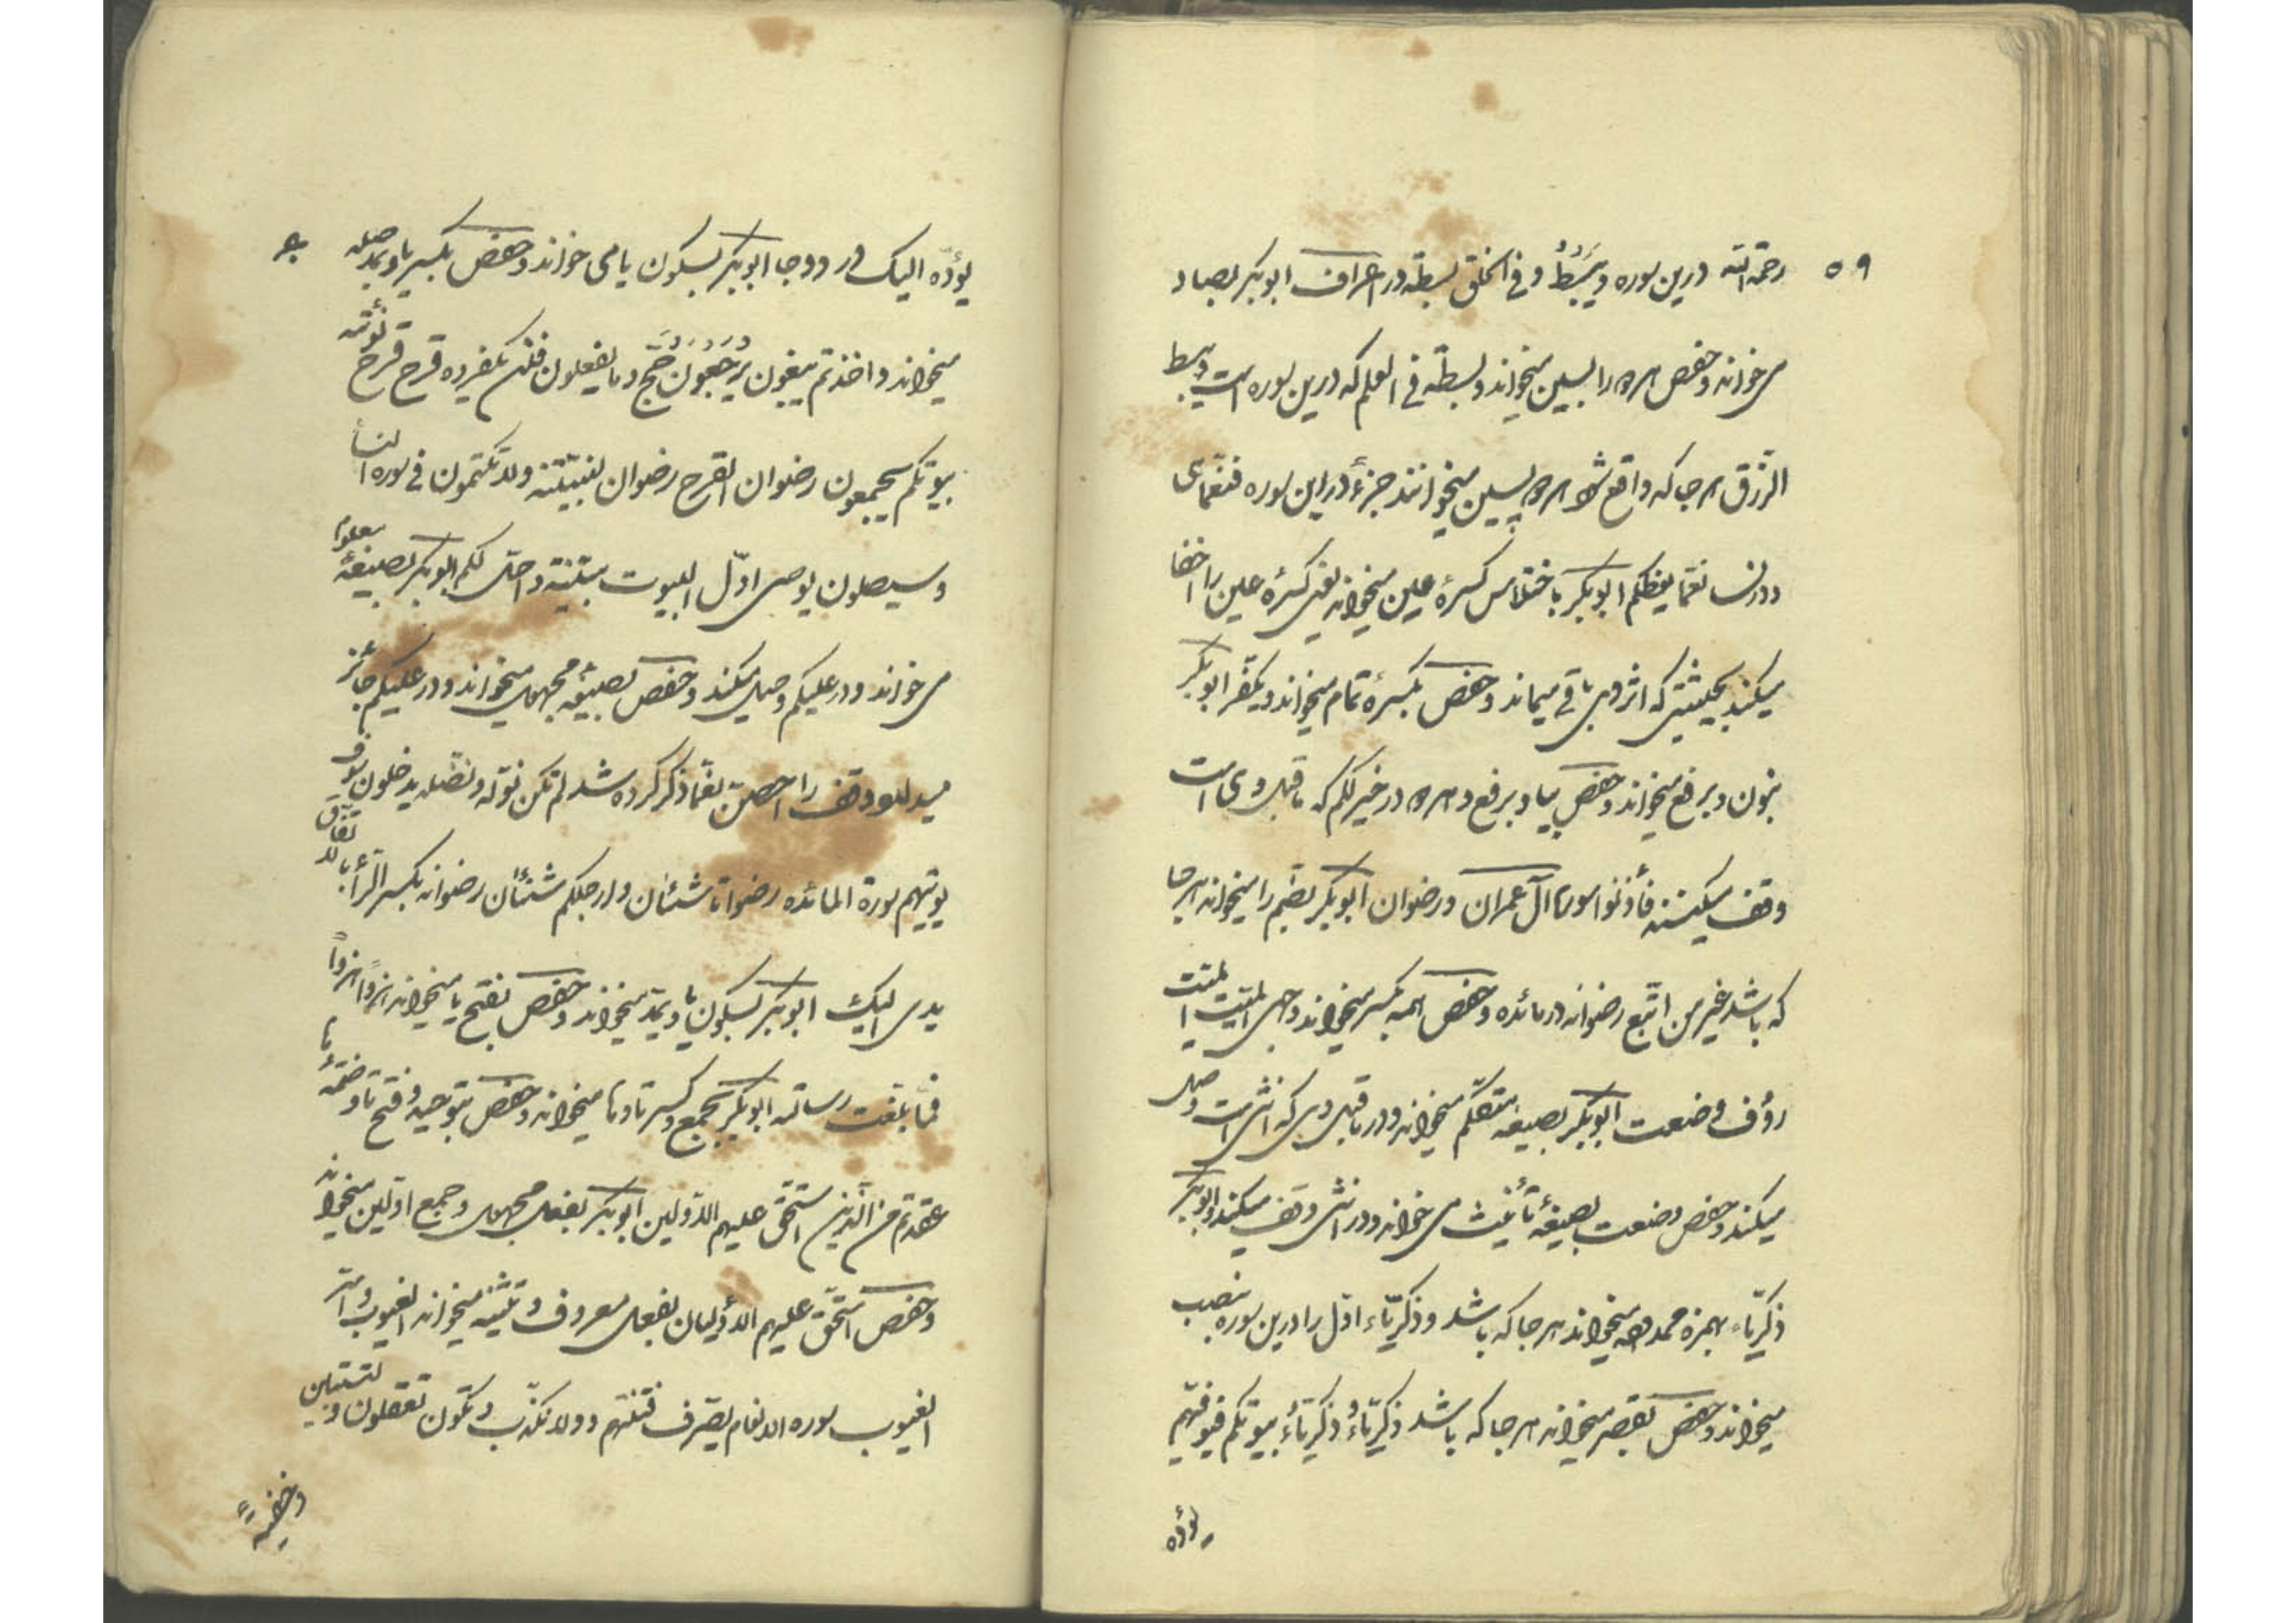 ۵۹
رحمة الله درین سوره و یَبسُطُ و فی الخلق بسطة در اعراف ابوبکر بصاد
می خواند و حفص هر دو را بسین میخواند و بسطة فی العلم که درین سوره است و یبسط
الرزق هر جا که واقع شود هر دو بسین میخوانند جزءً در این سوره فنعمّا هی
و در نسا نعمّا یعظکم ابوبکر باختلاس کسرهٔ عین میخواند یعنی کسرهٔ عین را اخفا
میکند بحیثیتی که اثر وی باقی میماند و حفص بکسرهٔ تمام میخواند و یکفر ابوبکر
بنون و برفع میخواند و حفص بیا و برفع و هر دو در خیر لکم که ما قبل وی است
وقف میکنند فأذنوا سورة آل عمران و رضوان ابوبکر بضم را میخواند هر جا
که باشد غیر من اتبع رضوانه در مائده و حفص همه بکسر میخواند و حی المیت المیت
رؤف وضعت ابوبکر بصیغه متکلّم میخواند و در ما قبل وی که انثی است وصل
میکند و حفص وضعت بصیغهٔ تأنیث می خواند و در انثی وقف میکند و ابوبکر
ذکریّاء بهمزه ممدوده میخواند هر جا که باشد و ذکریّاء اول را درین سوره بنصب
میخواند و حفص بقصر میخواند هر جا که باشد ذکریّاءُ و ذکریّاءُ بیوتکم فیوفیهم
یؤده
یؤده الیک در دو جا ابوبکر بسکون یا می خواند و حفص بکسر یا و بمد صله
میخواند و اخذتم یبغون یُرجَعُونَ حَجّ و ما یفعلون فلن یکفروه قرح قرح نؤته
بیوتکم یجمعون رضوان القرح رضوان لتبیننه و لا تکتمون فی سوره النسا
و سیصلون یوصی اوّل البیوت مبیّنة و احل لکم ابوبکر بصیغهٔ معلوم
می خواند و در علیکم وصل میکند و حفص بصیغهٔ مجهول میخواند و در علیکم جائز
میداند وقف را احصنّ نعمّا ذکر کرده شد لم تکن نوله و نصله یدخلون سوف
یؤتیهم سورة المائده رضوانا شنئان و ارجلکم شنئان رضوانه بکسر الرأ بالاتفاق
یدی الیک ابوبکر بسکون یا و بمد میخواند و حفص بفتح یا میخواند هزواً هزواً
فما بلغت رسالته ابوبکر بجمع و کسر تا و ها میخواند و حفص بتوحید و فتح تا و ضمهٔ ها
عقدتم من الّذین استحق علیهم الاولین ابوبکر بفعل مجهول و جمع اولین میخواند
و حفص استحق علیهم الاولیان بفعل معروف و تثنیه میخواند الغیوب و امّی
الغیوب سوره الانعام یصرف فتنتهم و لا نکذّب و نکون تعقلون و لتستبین
و خفیة